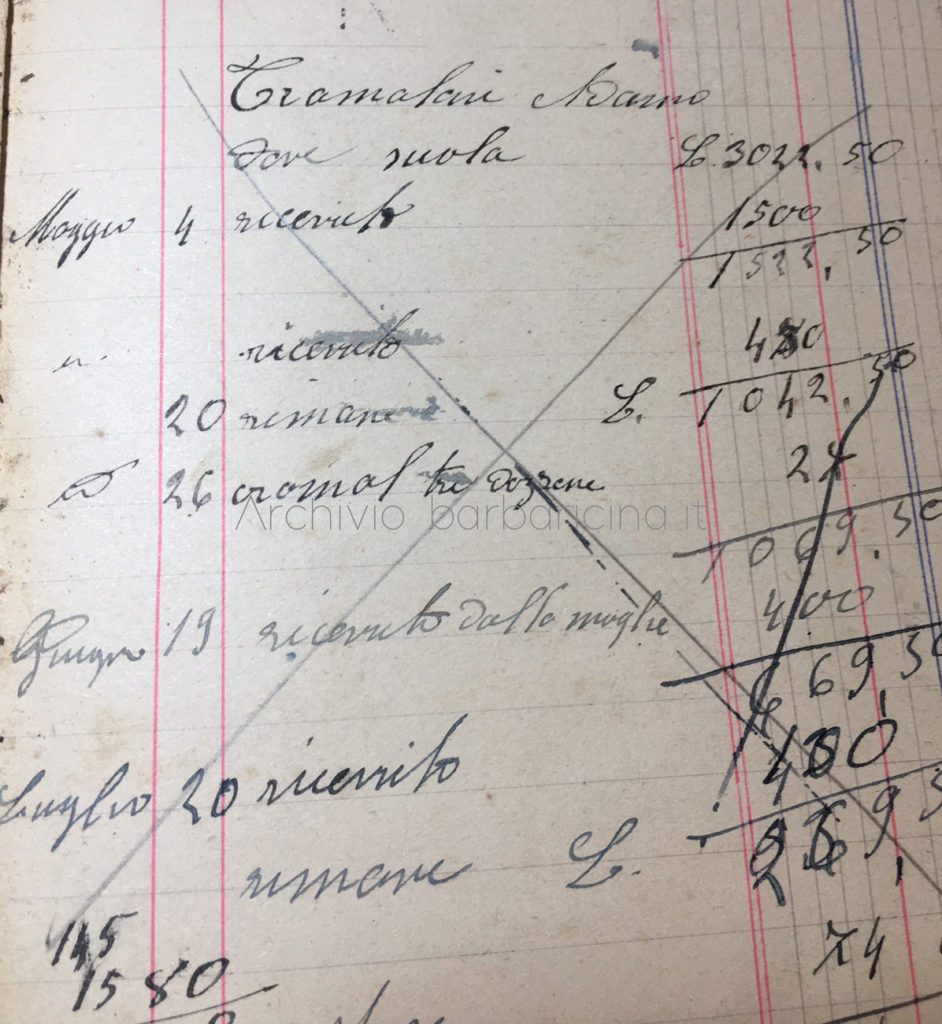 Adamo
Dare suola L. 3022. 50
Maggio 4 ricevuto 1500
1522, 50
" ricevuto 480
20 rimane L. 1042. 50
26 tre dozzene 27
Archivio barbaricina.it
1069. 50
Giugno 19 ricevuto dalla moglie 400
669, 50
Luglio 20 ricevuto 400
rimane L. 269,
145
1580 74